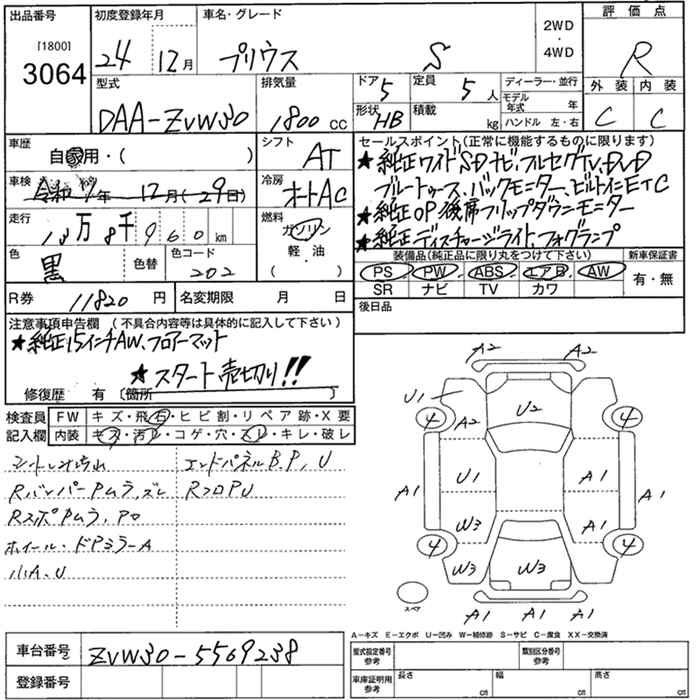 出品番号
[1800]
3064
初度登録年月
24 12月
車名・グレード
プリウス S
2WD
・
4WD
評価点
R
外装 内装
C C
型式
DAA-ZVW30
排気量
1800 cc
ドア 5
定員 5 人
形状 HB
積載 kg
ディーラー・並行
モデル年式 年
ハンドル 左・右
車歴
自家用・( )
シフト
AT
車検
令和7年 12月(29日)
冷房
オートAC
走行
13万8千960km
燃料
ガソリン
軽・油
( )
色
黒
色替
色コード
202
R券 11820円
名変期限 月 日
セールスポイント(正常に機能するものに限ります)
★純正ワイドSDナビ、フルセグTV、DVD
ブルートゥース、バックモニター、ビルトインETC
★純正OP後席フリップダウンモニター
★純正ディスチャージライト、フォグランプ
装備品(純正品に限り丸をつけて下さい)
PS PW ABS エアB AW
SR ナビ TV カワ
新車保証書
有・無
後日品
注意事項申告欄 (不具合内容等は具体的に記入して下さい)
★純正15インチAW、フロアーマット
★スタート売切り!!
修復歴 有 〔箇所 〕
検査員記入欄
FW キズ・飛石・ヒビ割・リペア跡・X要
内装 キズ・汚レ・コゲ・穴・スレ・キレ・破レ
エンドパネルB.P,U
RバンパーPムラ、ズレ RフロPU
ホイール・ドアミラーA
小A、U
A2 A2
U1
A2 U2
4 4
A1 U1 A1 A1
W3 A1
4 4
W3 W3
スペア
A1 A1 A1
A-キズ E-エクボ U-凹み W-補修跡 S-サビ C-腐食 XX-交換済
車台番号
ZVW30-5569238
登録番号
型式指定番号
参考
類別区分番号
参考
車庫証明用
参考
長さ cm
幅 cm
高さ cm